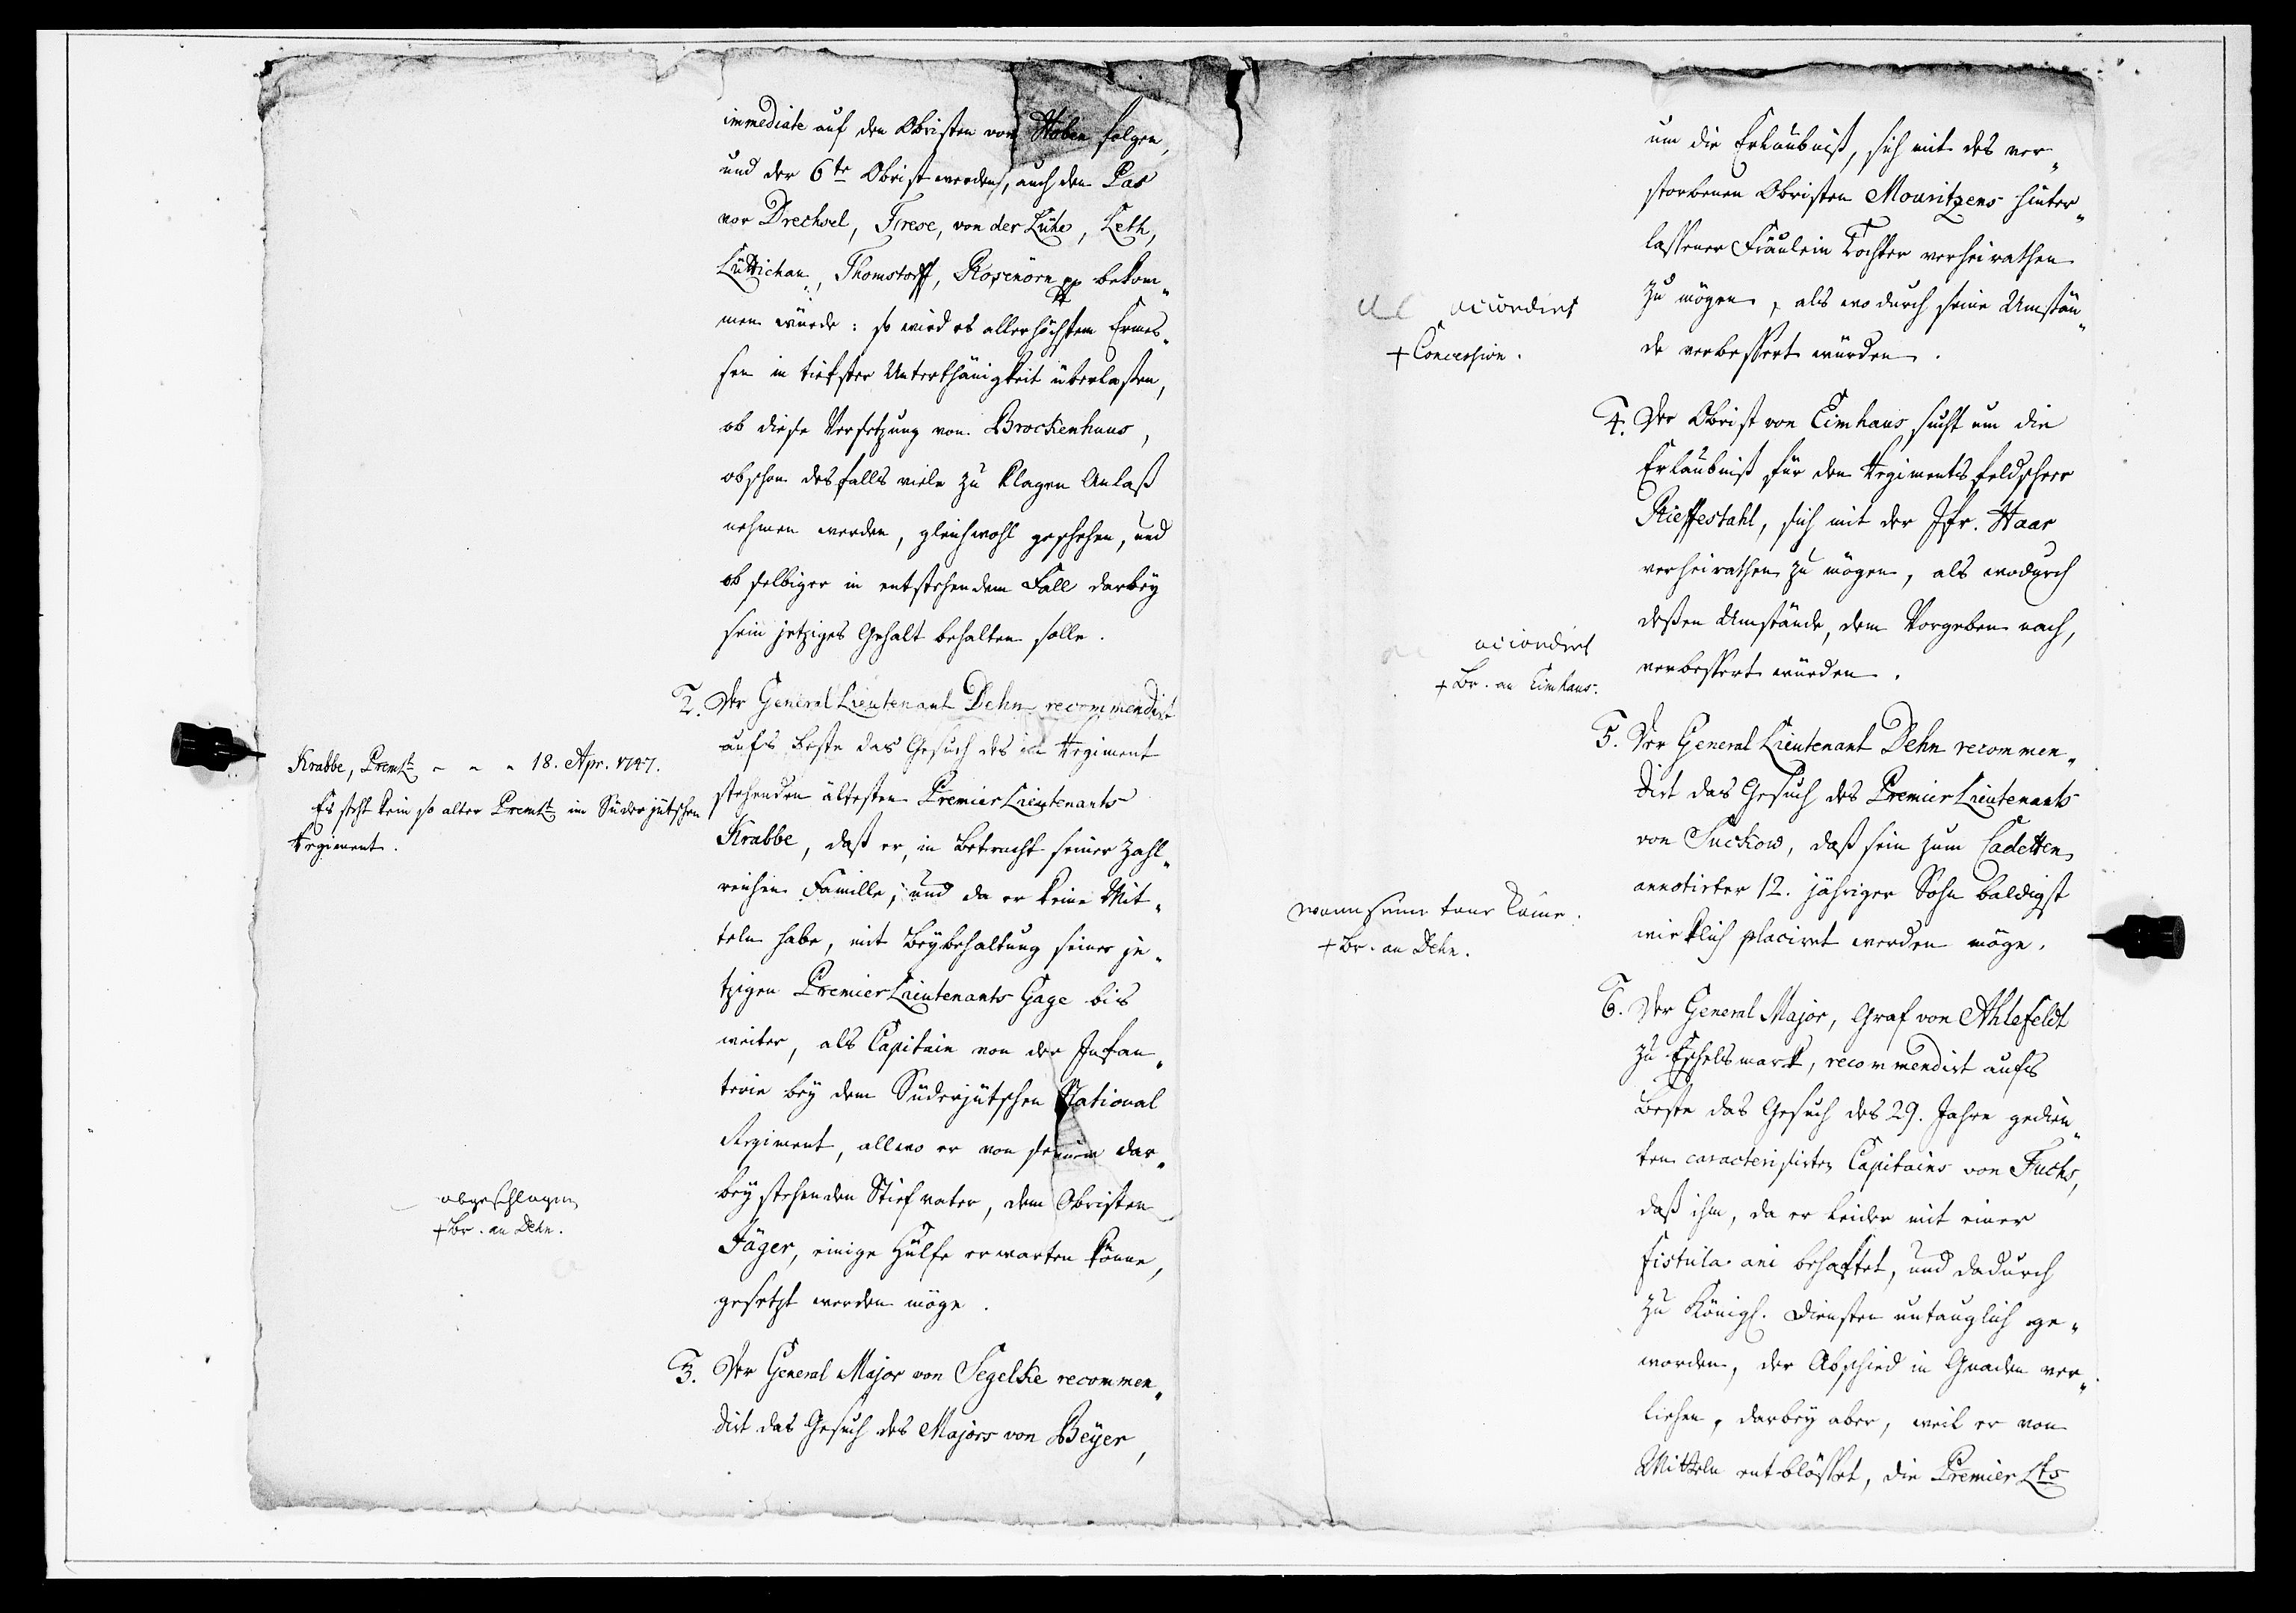 immediate auf den Obristen von Staben folgen,
und der 6te Obrist werden, auch den Pas
vor Drechsel, Frese, von der Lühe, Leth,
Lüttichau, Thomstorff, Rosenörn pp bekom„
men würde: so wird es allerhöchstem Ermes„
sen in tiefster Unterthänigkeit überlaßen,
ob diese Versetzung von Brockenhuus,
obschon desfalls viele zu klagen Anlaß
nehmen werden, gleichwohl geschehen, und
ob selbiger in entstehendem Fall darbey
sein jetziges Gehalt behalten solle.
2. Der General Lieutenant Dehn recommendirt
aufs beste das Gesuch des im Regiment
stehenden ältesten Premier Lieutenants
Krabbe, daß er, in Betracht seiner zahl„
reichen Familie, und da er keine Mit„
teln habe, mit Beybehaltung seiner je„
tzigen Premier Lieutenants Gage bis
weiter, als Capitain von der Infan„
terie bey dem Süderjütschen National
Regiment, allwo er von seinem dar„
bey stehenden Stiefvater, dem Obristen
Jäger, einige Hülfe erwarten könne,
gesetzt werden möge.
3. Der General Major von Segelke recommen„
dirt das Gesuch des Majors von Beyer,
Krabbe, Premlt - - - 18. Apr. 1747.
Es steht kein so alter Premlt im Süderjütschen
Regiment.
abgeschlagen
+ Br. an Dehn.
um die Erlaubniß, sich mit des ver„
storbenen Obristen Mouritzens hinter„
lassener Fräulein Tochter verheirathen
zu mögen, als wodurch seine Umstän„
de verbessert würden.
accordirt
+ Concession.
4. Der Obrist von Eimhaus sucht um die
Erlaubniß für den Regimentsfeldscheer
Rieffestahl, sich mit der Jfr. Haar
verheirathen zu mögen, als wodurch
deßen Umstände, dem Vorgeben nach,
verbessert würden.
accordirt
+ Br. an Eimhaus.
5. Der General Lieutenant Dehn recommen„
dirt das Gesuch des Premier Lieutenants
von Suckow, daß sein zum Cadetten
annotirter 12. jähriger Sohn baldigst
wirklich placiret werden möge.
wann seine tour käme.
+ Br. an Dehn.
6. Der General Major, Graf von Ahlefeldt
zu Eschelsmark, recommendirt aufs
beste das Gesuch des 29. Jahre gedien„
ten caracterisirten Capitains von Fuchs,
daß ihm, da er leider mit einer
fistula ani behaftet, und dadurch
zu Königl. Diensten untauglich ge„
worden, der Abschied in Gnaden ver„
liehen, darbey aber, weil er von
Mitteln entblösset, die Premier Lts